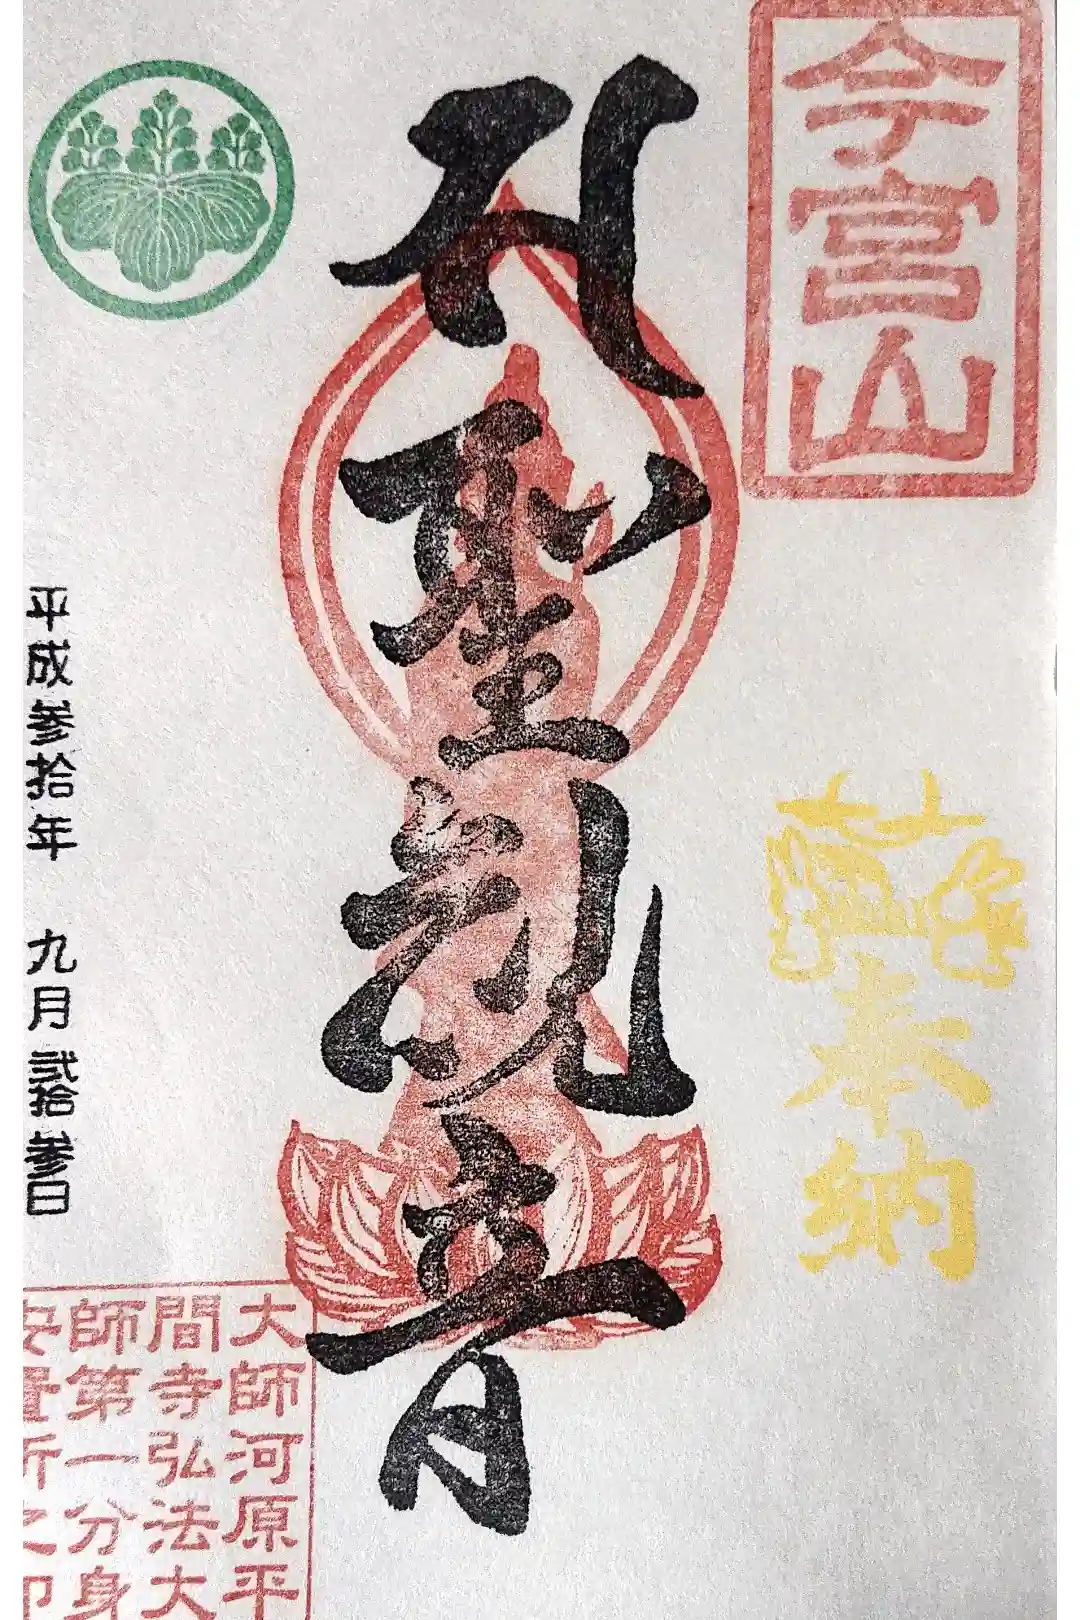 今宮山
奉納
聖観音
平成参拾年 九月弐拾参日
大師河原平
間寺弘法大
師第一分身
安置所之印